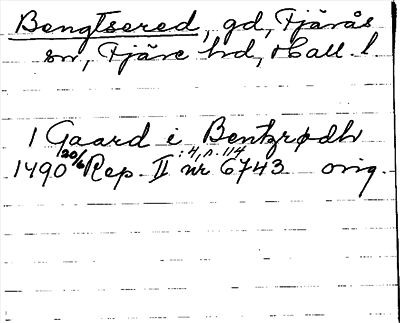 Bengtsered, gd, Fjärås
sn, Fjäre hd, Hall. l
1 Gaard i Bentzrødh
1490 20/6 Rep. II :4, s. 114 nr 6743 orig.